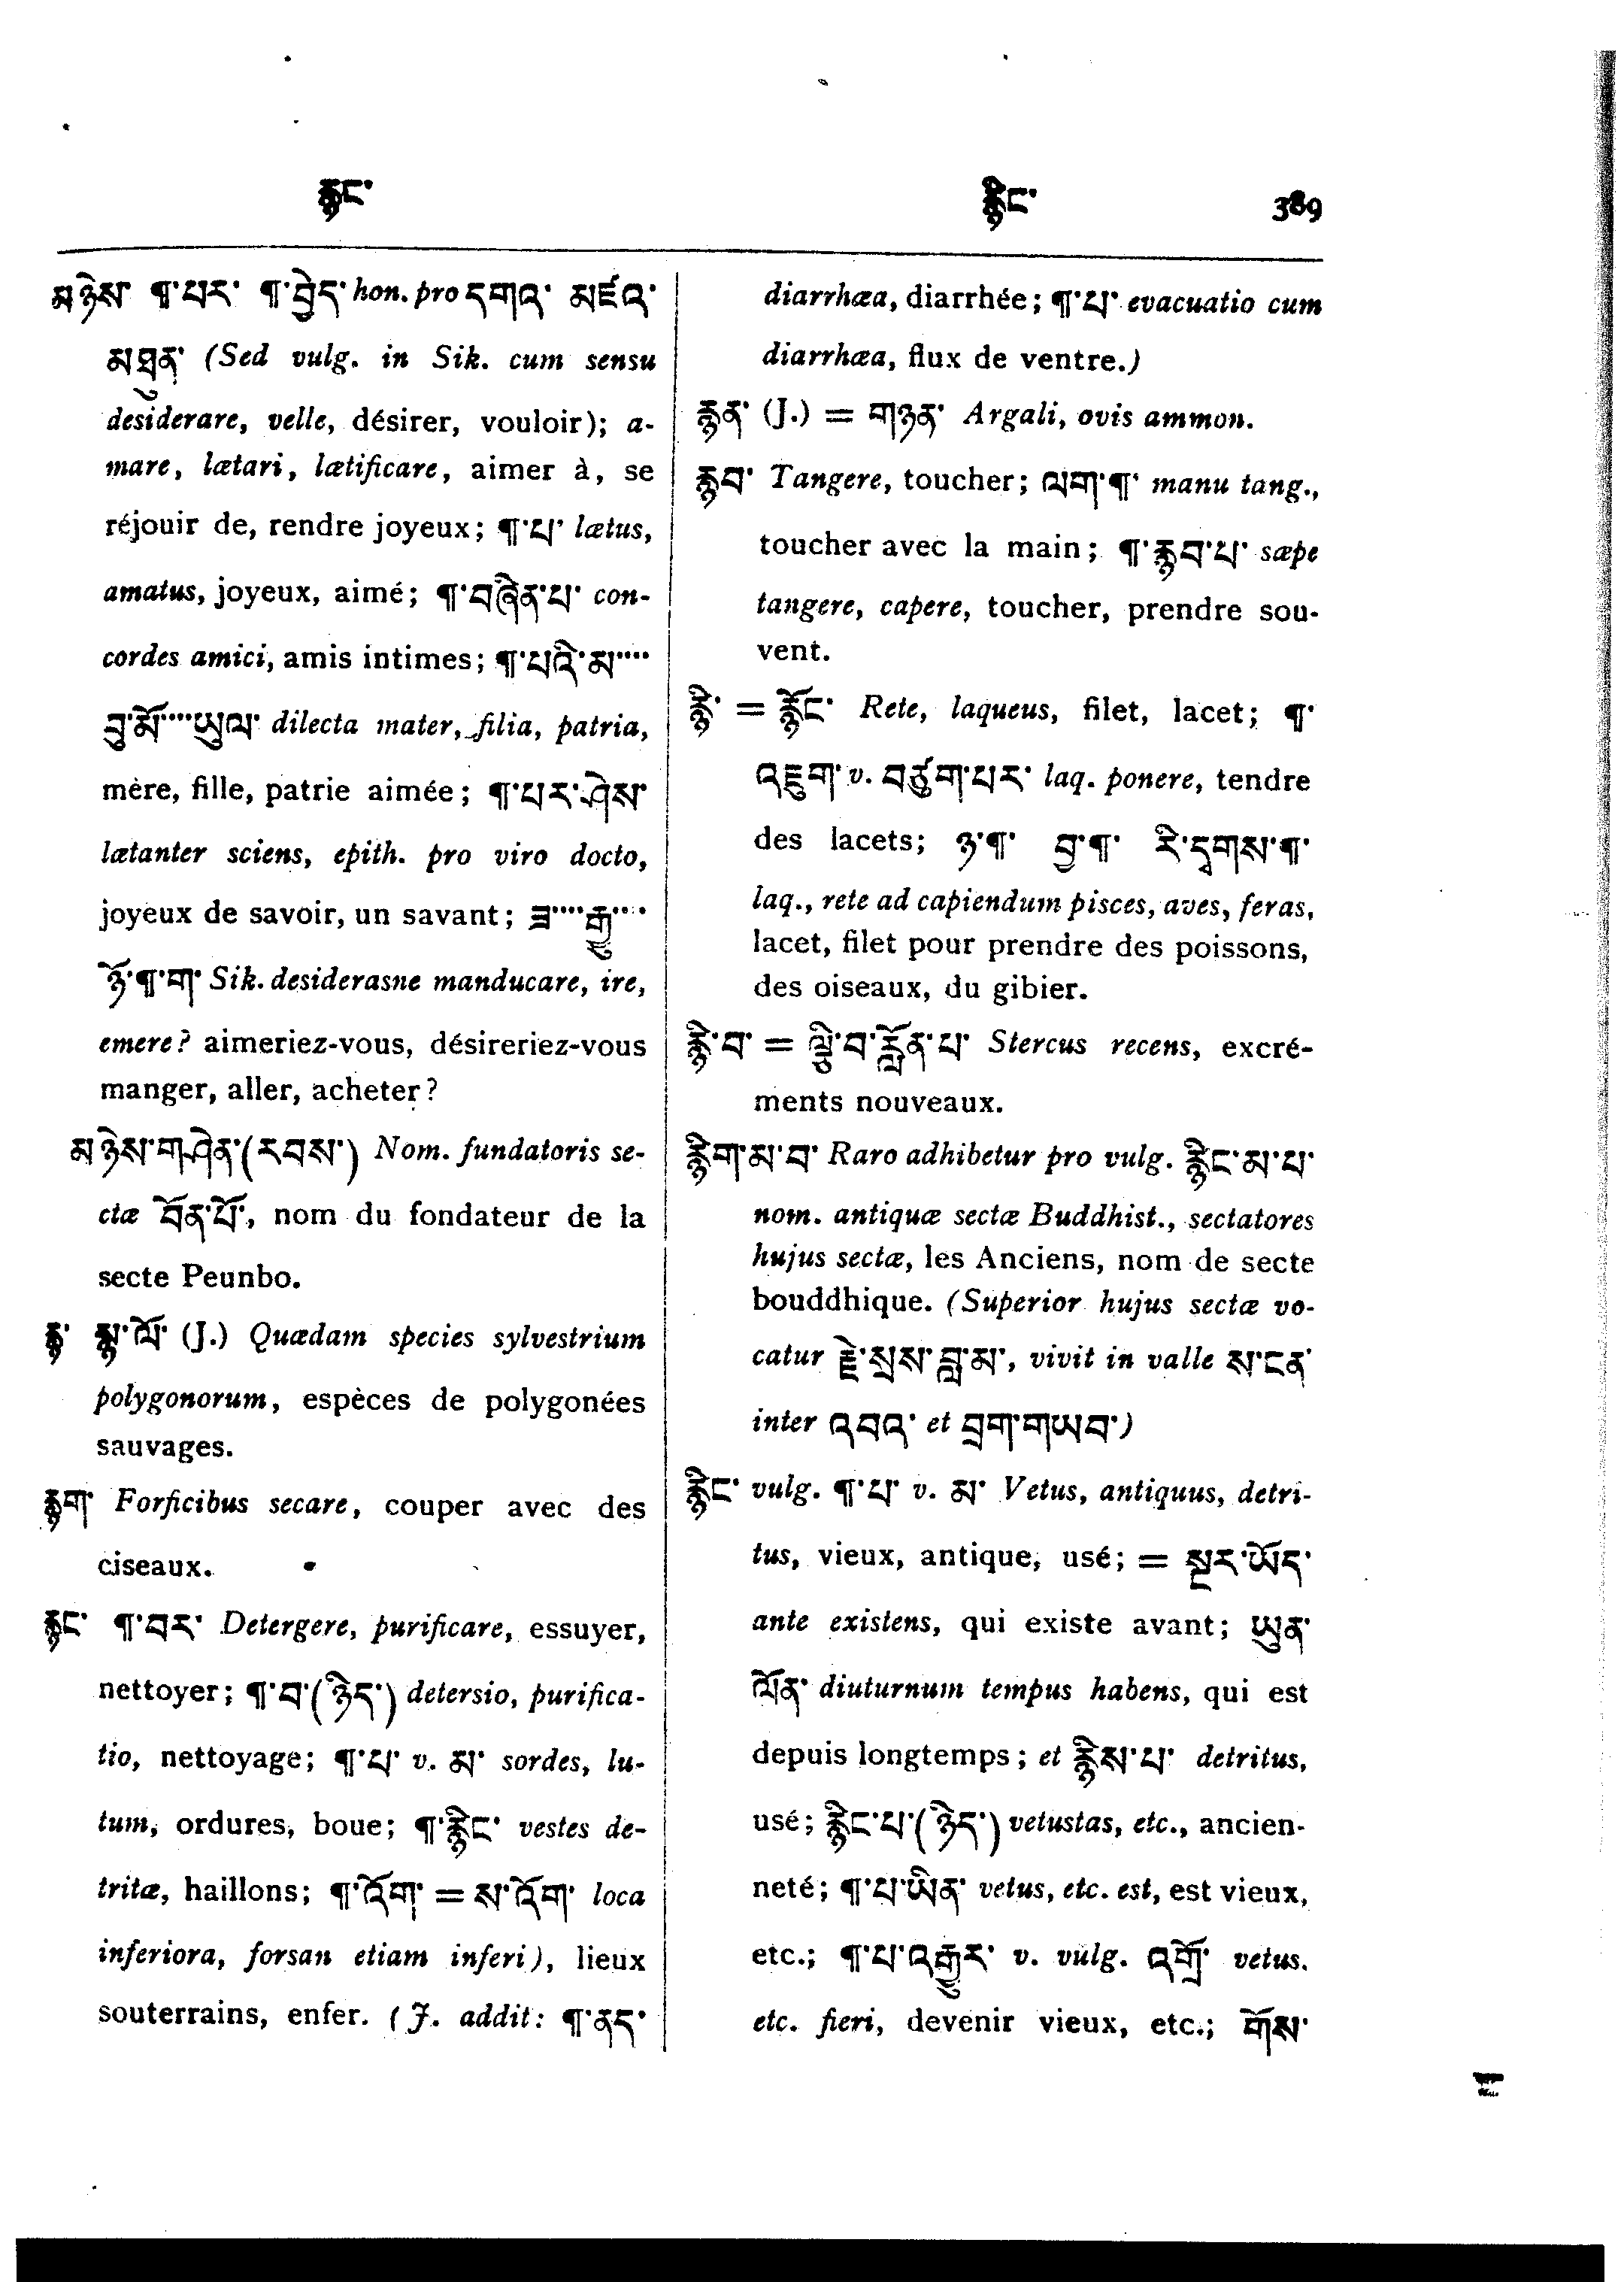 རྙང་
རྙིང་
389
མཉེས་ ¶་པར་ ¶་བྱེད་ hon. pro དགའ་ མཛའ་
མཐུན་ (Sed vulg. in Sik. cum sensu
desiderare, velle, désirer, vouloir); a-
mare, lætari, lætificare, aimer à, se
réjouir de, rendre joyeux; ¶་པ་ lætus,
amatus, joyeux, aimé; ¶་བཞིན་པ་ con-
cordes amici, amis intimes; ¶་པའི་མ་····
བུ་མོ་····ཡུལ་ dilecta mater, filia, patria,
mère, fille, patrie aimée; ¶་པར་ཤེས་
lætanter sciens, epith. pro viro docto,
joyeux de savoir, un savant; ཟ་····རྒྱུ་····
ཉོ་¶་ག་ Sik. desiderasne manducare, ire,
emere? aimeriez-vous, désireriez-vous
manger, aller, acheter?
མཉེས་གཤེན་(རབས་) Nom. fundatoris se-
ctæ བོན་པོ་, nom du fondateur de la
secte Peunbo.
རྙ་ སྙ་ལོ་ (J.) Quædam species sylvestrium
polygonorum, espèces de polygonées
sauvages.
རྙག་ Forficibus secare, couper avec des
ciseaux.
རྙང་ ¶་བར་ Detergere, purificare, essuyer,
nettoyer; ¶་བ་(ཉིད་) detersio, purifica-
tio, nettoyage; ¶་པ་ v. མ་ sordes, lu-
tum, ordures, boue; ¶་རྙིང་ vestes de-
tritæ, haillons; ¶་འོག་ = ས་འོག་ loca
inferiora, forsan etiam inferi), lieux
souterrains, enfer. (J. addit: ¶་ནད་
diarrhæa, diarrhée; ¶་པ་ evacuatio cum
diarrhæa, flux de ventre.)
རྙན་ (J.) = གཉན་ Argali, ovis ammon.
རྙབ་ Tangere, toucher; ལག་¶་ manu tang.,
toucher avec la main; ¶་རྙབ་པ་ sæpe
tangere, capere, toucher, prendre sou-
vent.
རྙི་ = རྙོང་ Rete, laqueus, filet, lacet; ¶་
འཇུག་ v. བཙུག་པར་ laq. ponere, tendre
des lacets; ཉ་¶་ བྱ་¶་ རི་དྭགས་¶་
laq., rete ad capiendum pisces, aves, feras,
lacet, filet pour prendre des poissons,
des oiseaux, du gibier.
རྙི་བ་ = ལྕི་བ་རློན་པ་ Stercus recens, excré-
ments nouveaux.
རྙིག་མ་བ་ Raro adhibetur pro vulg. རྙིང་མ་པ་
nom. antiquæ sectæ Buddhist., sectatores
hujus sectæ, les Anciens, nom de secte
bouddhique. (Superior hujus sectæ vo-
catur རྗེ་སྲས་བླ་མ་, vivit in valle ས་ངན་
inter འབའ་ et བྲག་གཡབ་)
རྙིང་ vulg. ¶་པ་ v. མ་ Vetus, antiquus, detri-
tus, vieux, antique, usé; = སྔར་ཡོད་
ante existens, qui existe avant; ཡུན་
ལོན་ diuturnum tempus habens, qui est
depuis longtemps; et རྙིས་པ་ detritus,
usé; རྙིང་པ་(ཉིད་) vetustas, etc., ancien-
neté; ¶་པ་ཡིན་ vetus, etc. est, est vieux,
etc.; ¶་པ་འགྱུར་ v. vulg. འགྲོ་ vetus.
etc. fieri, devenir vieux, etc.; གོས་